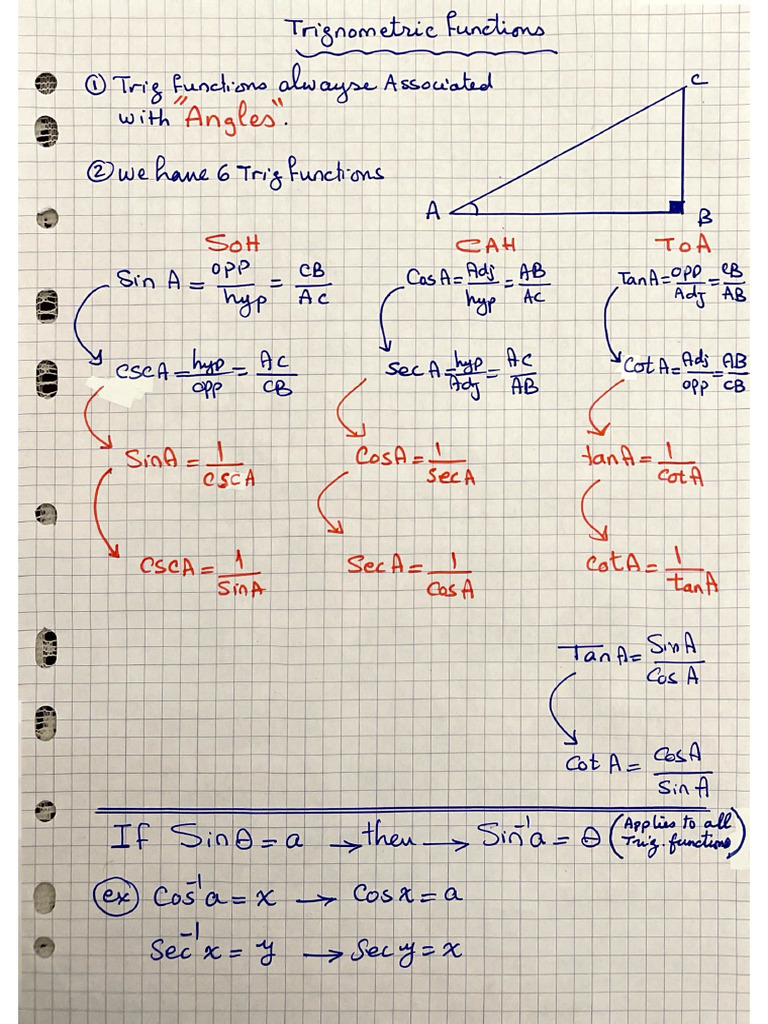 Trignometric Functions
① Trig Functions alwayse Associated
with "Angles".
② we have 6 Trig Functions
A
B
C
SOH
CAH
TOA
Sin A = opp/hyp = CB/AC
Cos A = Adj/hyp = AB/AC
Tan A = opp/Adj = CB/AB
CSC A = hyp/opp = AC/CB
Sec A = hyp/Adj = AC/AB
Cot A = Adj/opp = AB/CB
Sin A = 1/CSC A
Cos A = 1/Sec A
tan A = 1/Cot A
CSC A = 1/Sin A
Sec A = 1/Cos A
Cot A = 1/tan A
Tan A = Sin A/Cos A
Cot A = Cos A/Sin A
If Sin θ = a → then → Sin⁻¹ a = θ (Applies to all Trig. functions)
ex Cos⁻¹ a = x → Cos x = a
Sec⁻¹ x = y → Sec y = x